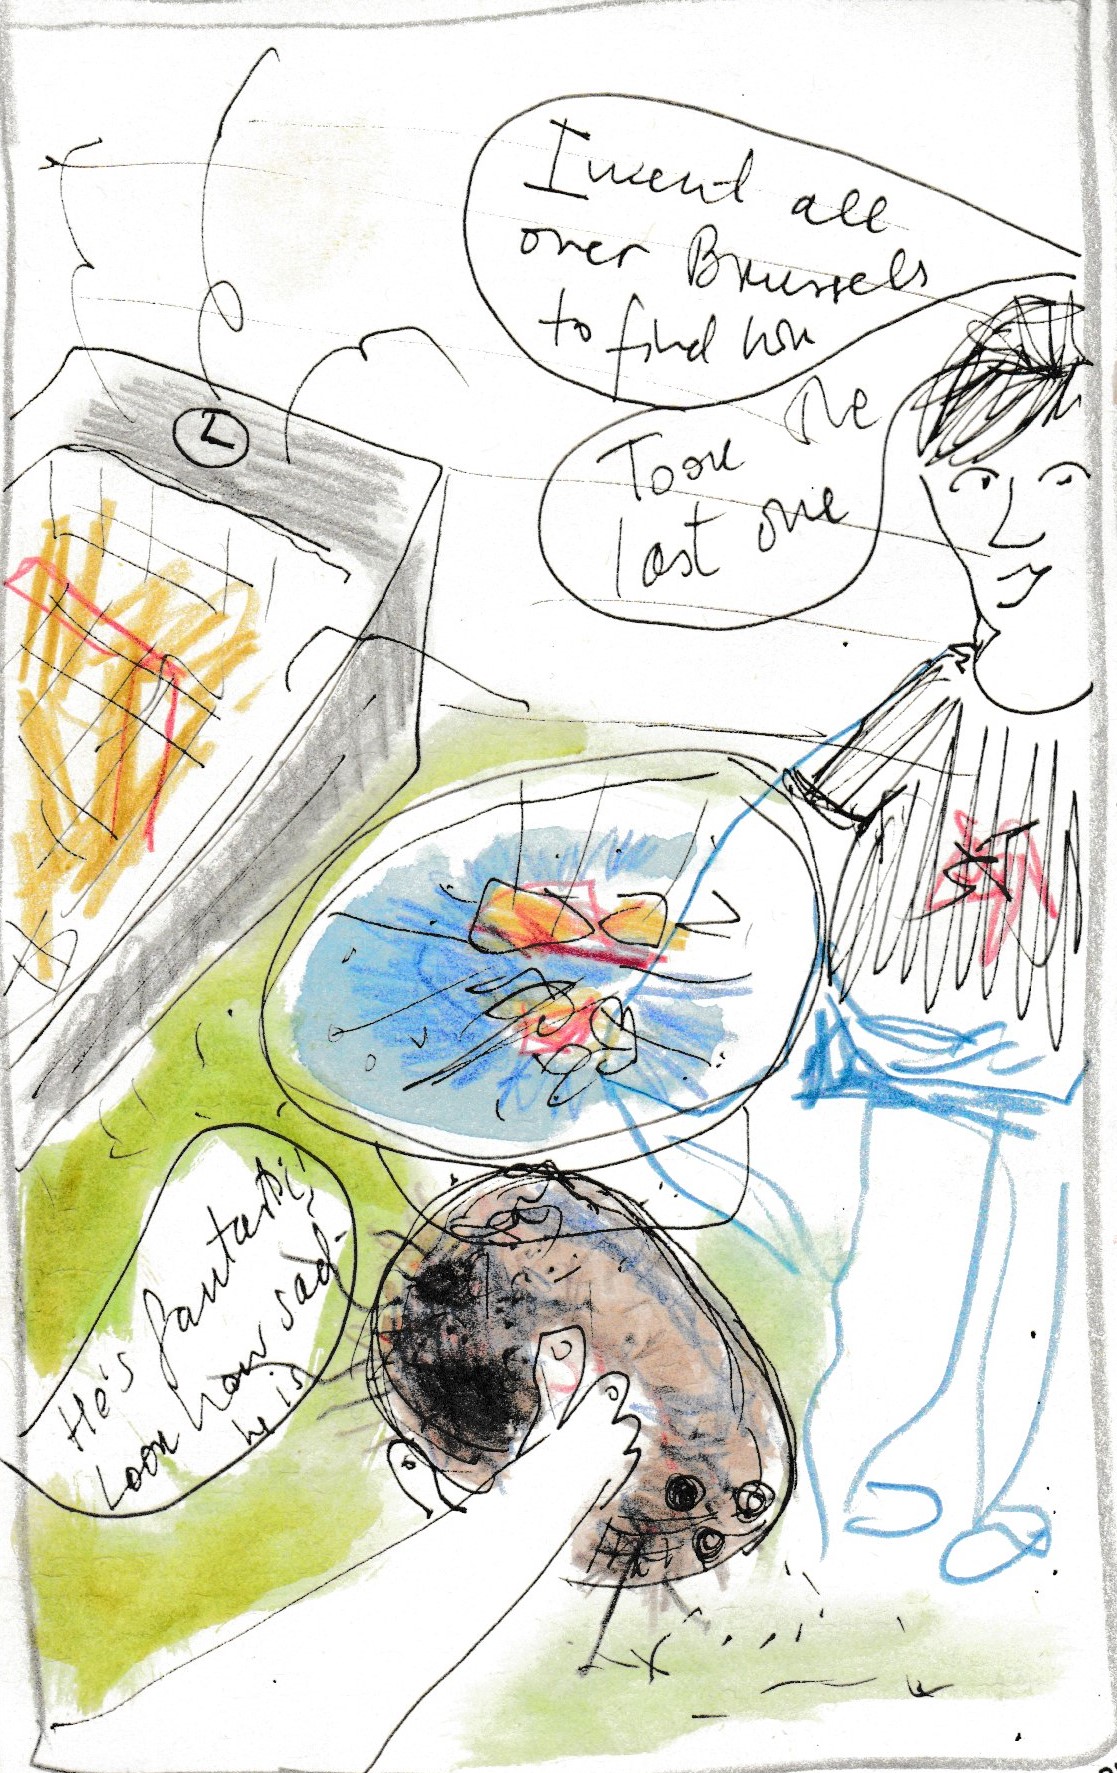 I went all
over Brussels
to find him
Took the
last one
He's fantastic!
Look how sad
he is